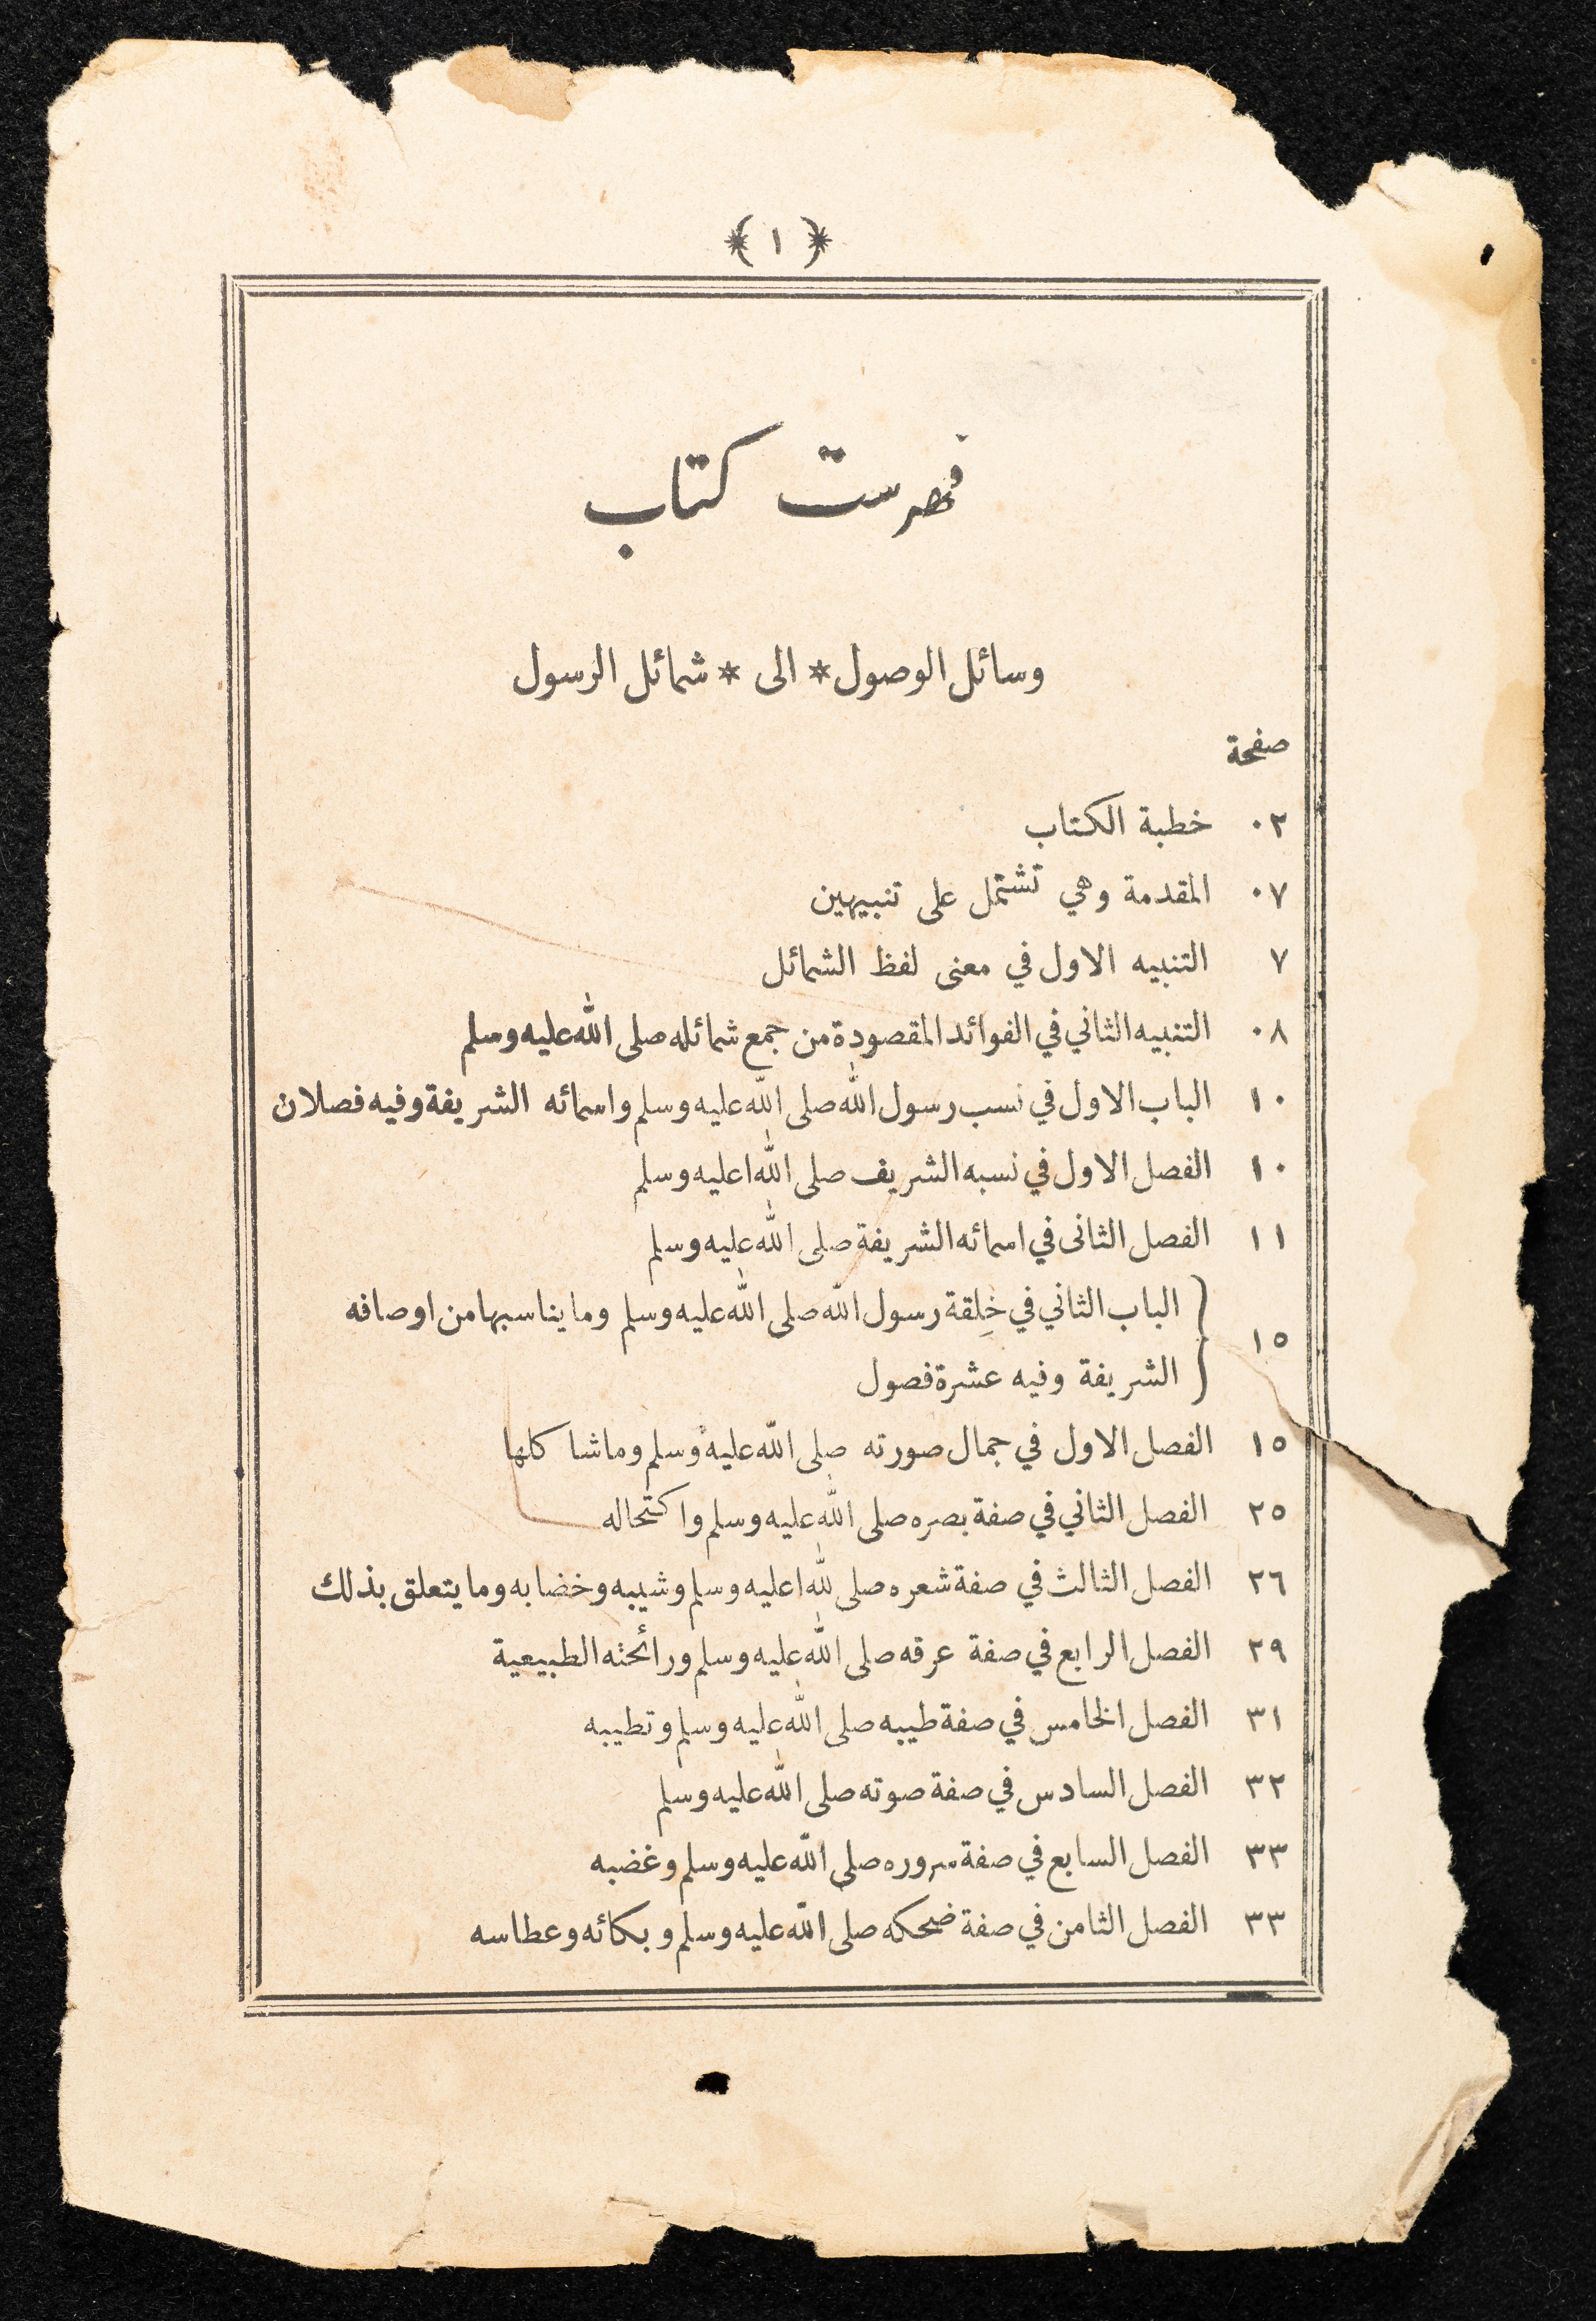 ﴿ ١ ﴾
فهرست كتاب
وسائل الوصول * الى * شمائل الرسول
صفحة
٠٢ خطبة الكتاب
٠٧ المقدمة وهي تشتمل على تنبيهين
٧ التنبيه الاول في معنى لفظ الشمائل
٠٨ التنبيه الثاني في الفوائد المقصودة من جمع شمائله صلى الله عليه وسلم
١٠ الباب الاول في نسب رسول الله صلى الله عليه وسلم واسمائه الشريفة وفيه فصلان
١٠ الفصل الاول في نسبه الشريف صلى الله اعليه وسلم
١١ الفصل الثانى في اسمائه الشريفة صلى الله عليه وسلم
١٥ الباب الثاني في خِلقة رسول الله صلى الله عليه وسلم وما يناسبها من اوصافه
الشريفة وفيه عشرة فصول
١٥ الفصل الاول في جمال صورته صلى الله عليه وسلم وما شاكلها
٢٥ الفصل الثاني في صفة بصره صلى الله عليه وسلم واكتحاله
٢٦ الفصل الثالث في صفة شعره صلى لله اعليه وسلم وشيبه وخضابه وما يتعلق بذلك
٢٩ الفصل الرابع في صفة عرقه صلى الله عليه وسلم ورائحته الطبيعية
٣١ الفصل الخامس في صفة طيبه صلى الله عليه وسلم وتطيبه
٣٢ الفصل السادس في صفة صوته صلى الله عليه وسلم
٣٣ الفصل السابع في صفة سروره صلى الله عليه وسلم وغضبه
٣٣ الفصل الثامن في صفة ضحكه صلى الله عليه وسلم وبكائه وعطاسه